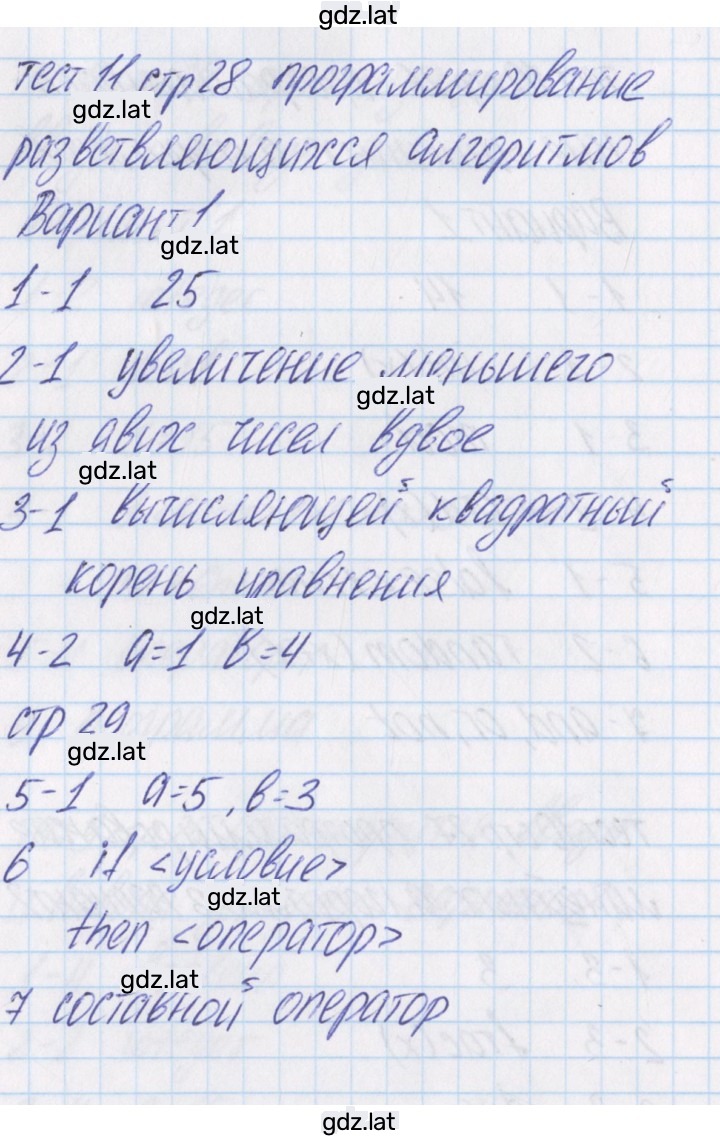 gdz.lat
тест 11 стр 28 программирование
gdz.lat
разветвляющихся алгоритмов
Вариант 1
gdz.lat
1-1 25
2-1 увеличение меньшего
gdz.lat
из двих чисел вдвое
gdz.lat
3-1 вычисляющей квадратный
корень уравнения
gdz.lat
4-2 a=1 в=4
стр 29
gdz.lat
5-1 a=5, в=3
6 if <условие>
gdz.lat
then <оператор>
gdz.lat
7 составной оператор
gdz.lat